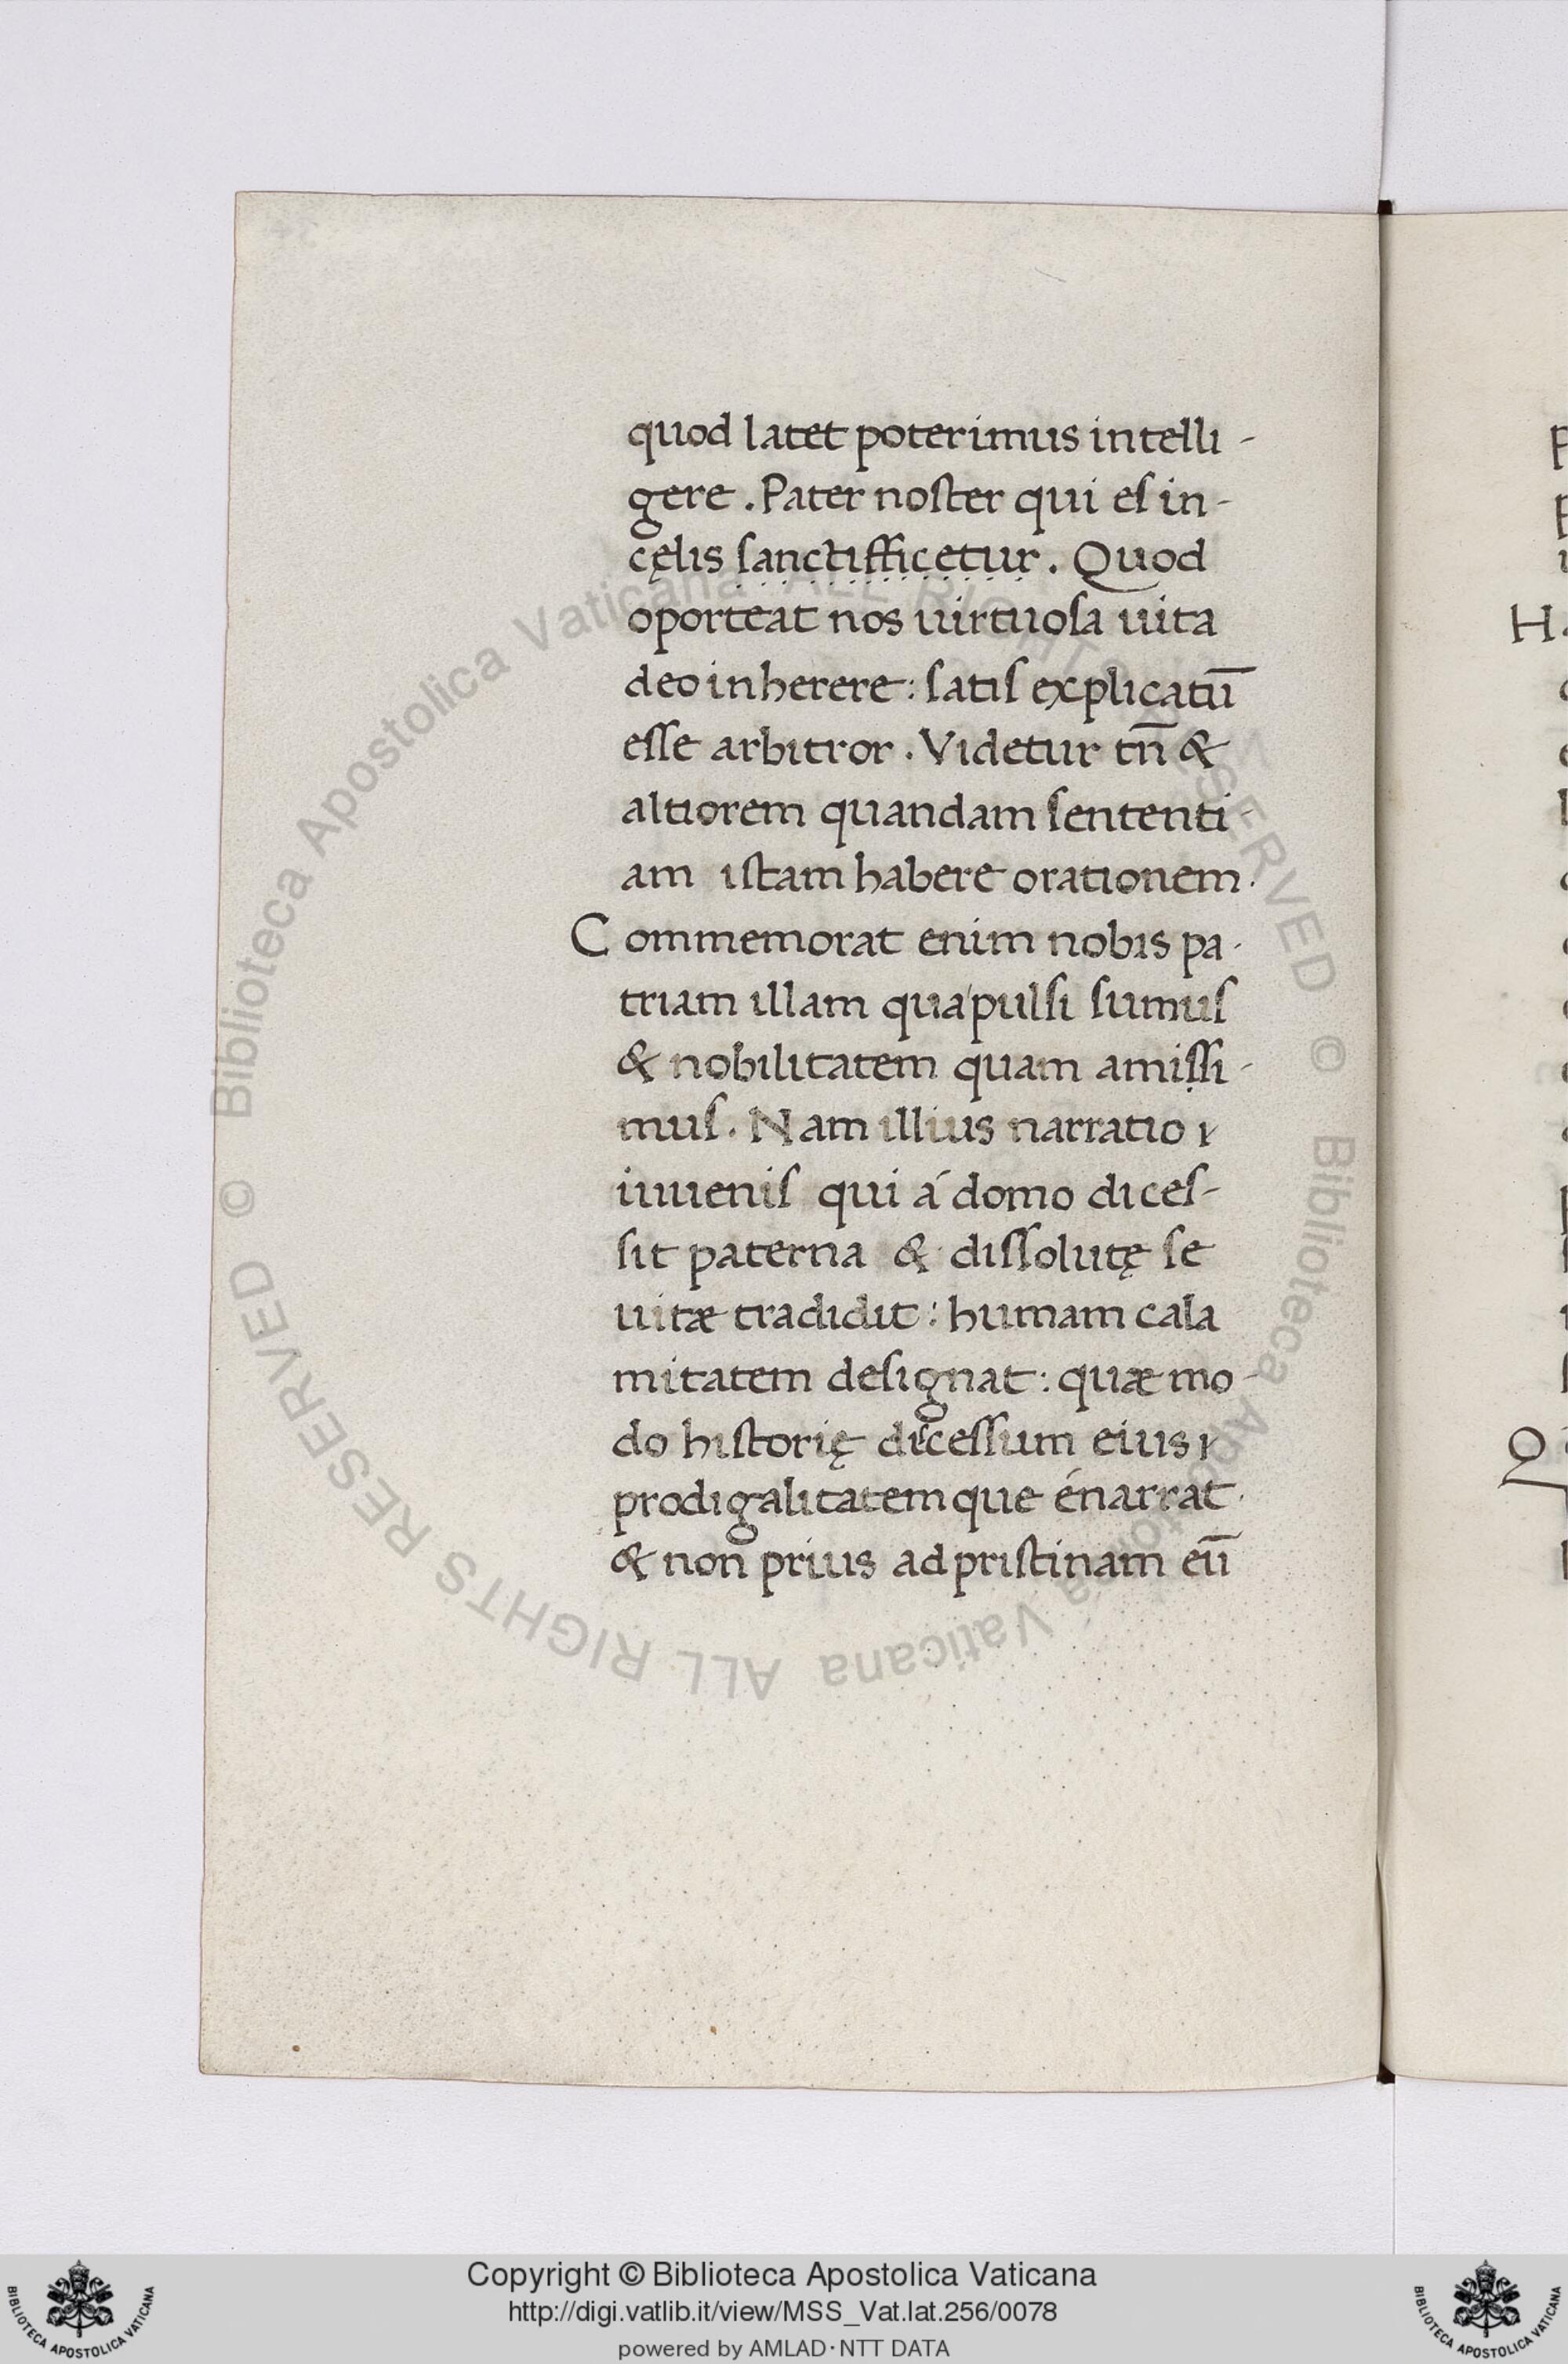 quod latet poterimus intelli-
gere. Pater noſter qui eſ in-
cęlis ſanctifficetur. Quod
oporteat nos uirtuoſa uita
deo inherere: ſatiſ explicatū
eſſe arbitror. Videtur tn̄ &
altiorem quandam ſententi-
am iſtam habere orationem.
Commemorat enim nobis pa-
triam illam qua pulſi ſumuſ
& nobilitatem quam amiſſi-
muſ. Nam illius narratio
iuueniſ qui á domo diceſ-
ſit paterna & diſſolutę ſe
uitæ tradidit: humam cala
mitatem deſignat: quæ mo-
do hiſtorię diſceſſum eius
prodigalitatemque énarrat.
& non prius ad priſtinam eū
H
Q
© Biblioteca Apostolica Vaticana ALL RIGHTS RESERVED © Biblioteca Apostolica Vaticana ALL RIGHTS RESERVED
Copyright © Biblioteca Apostolica Vaticana
http://digi.vatlib.it/view/MSS_Vat.lat.256/0078
powered by AMLAD·NTT DATA
BIBLIOTECA APOSTOLICA VATICANA
BIBLIOTECA APOSTOLICA VATICANA